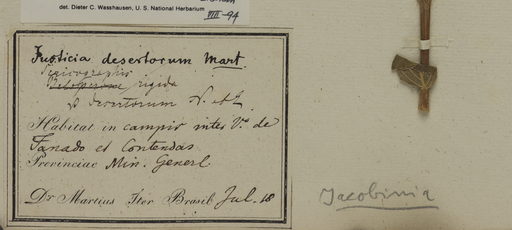 det. Dieter C. Wasshausen, U. S. National Herbarium
VIII-94
Justicia desertorum Mart.
rigida
desertorum N. ab E.
Habitat in campis inter V.s de
Fanado et Contendas
Provinciae Min. Generl
Dr Martius Iter Brasil Jul. 18
Jacobinia